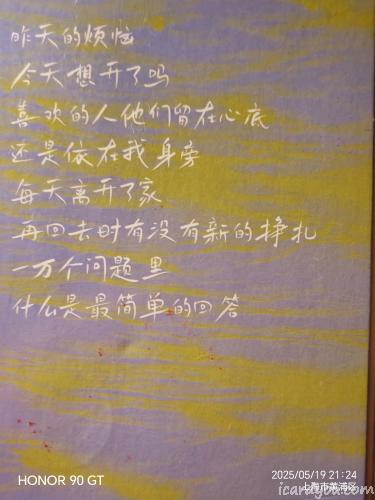 昨天的烦恼
今天想开了吗
喜欢的人他们留在心底
还是依在我身旁
每天离开了家
再回去时有没有新的挣扎
一万个问题里
什么是最简单的回答
HONOR 90 GT
2025/05/19 21:24
上海市黄浦区